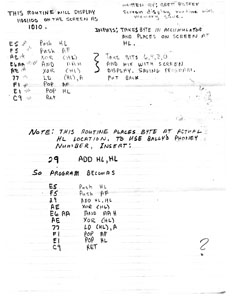 THIS ROUTINE WILL DISPLAY
ON THE SCREEN AS
1010.
TAKES BYTE IN ACCUMULATOR
AND PLACES ON SCREEN AT
HL.
E5 Push HL
F5 Push AF
AE XOR (HL)
E6AA AND AAH
AE XOR (HL)
77 LD (HL),A
F1 POP AF
E1 POP HL
C9 RET
TAKE BITS
AND MIX WITH SCREEN
DISPLAY. SAVING
PUT BACK
NOTE: THIS ROUTINE PLACES BYTE AT ACTUAL
HL LOCATION, TO USE BALLY'S PHONEY
NUMBER, INSERT:
29 ADD HL,HL
SO PROGRAM BECOMES
E5 Push HL
F5 Push AF
29 ADD HL,HL
AE XOR (HL)
E6 AA AND AAH
AE XOR (HL)
77 LD (HL),A
F1 POP AF
E1 POP HL
C9 RET
?